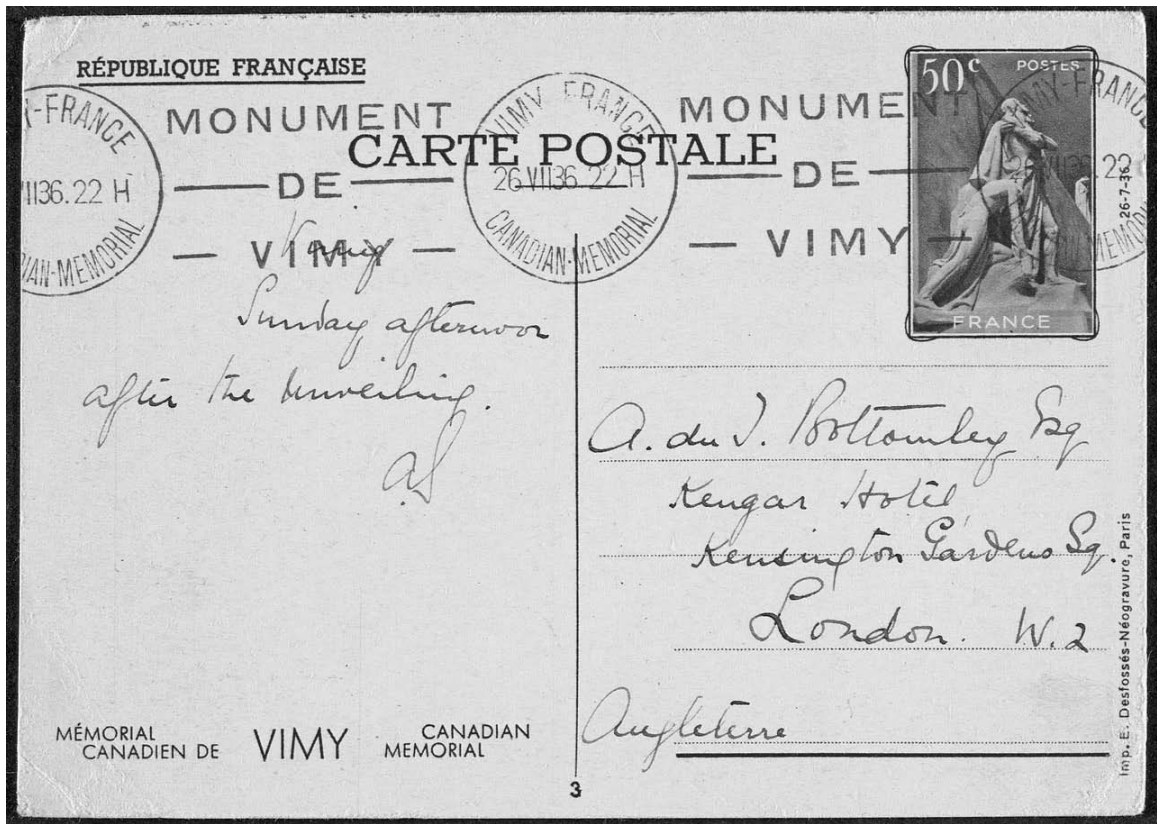 RÉPUBLIQUE FRANÇAISE
CARTE POSTALE
50c POSTES
FRANCE
Y-FRANCE
VII36.22 H
DIAN-MEMORIAL
MONUMENT
DE
VIMY
VIMY FRANCE
26 VII36 22 H
CANADIAN-MEMORIAL
MONUMENT
DE
VIMY
MY-FRANCE
VII36.22
MEMO
26-7-36
Vimy
Sunday afternoon
after the unveiling.
A. du J. Bottomley Esq
Kengar Hotel
Kensington Gardens Sq.
London. W.2
Angleterre
MÉMORIAL
CANADIEN DE
VIMY
CANADIAN
MEMORIAL
3
Imp. E. Desfossés-Néogravure, Paris